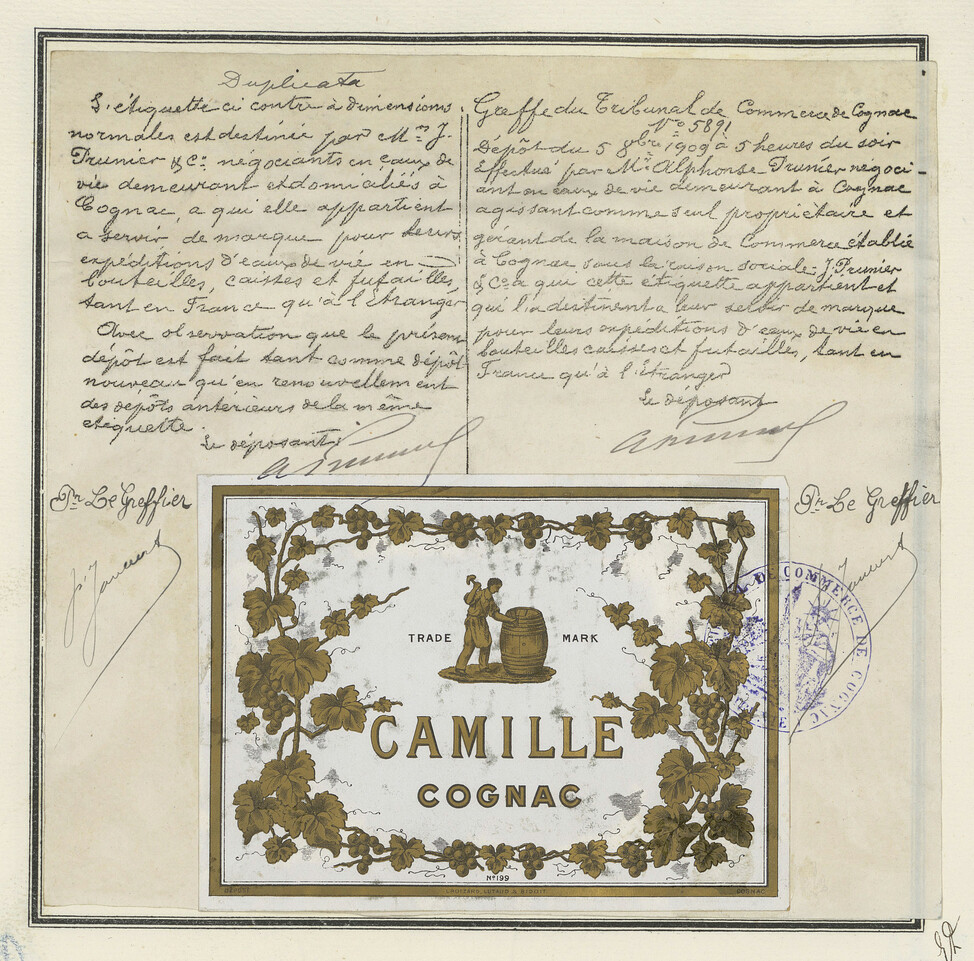 Duplicata
L'étiquette ci contre à dimensions
normales est destinée par M.rs J.
Prunier & Cie négociants en eaux de
vie demeurant et domiciliés à
Cognac, a qui elle appartient
a servir de marque pour leurs
expéditions d'eaux de vie en
bouteilles, caisses et futailles,
tant en France qu'à l'étranger
Avec observation que le présent
dépôt est fait tant comme dépôt
nouveau qu'en renouvellement
des dépôts antérieurs de la même
étiquette.
Le déposant:
Pr Le Greffier
Greffe du Tribunal de Commerce de Cognac
No 5891
Dépôt du 5 8bre 1909 à 5 heures du soir
Effectué par Mr Alphonse Prunier négoci-
ant en eaux de vie demeurant à Cognac
agissant comme seul propriétaire et
gérant de la maison de Commerce établie
à Cognac sous la raison sociale J. Prunier
& Cie a qui cette étiquette appartient et
qui la destinent a leur servir de marque
pour leurs expéditions d'eaux de vie en
bouteilles caisses et futailles, tant en
France qu'à l'étranger
Le déposant
Pr Le Greffier
TRADE MARK
CAMILLE
COGNAC
No 199
DÉPOSÉ
COGNAC
DE COMMERCE DE COGNAC